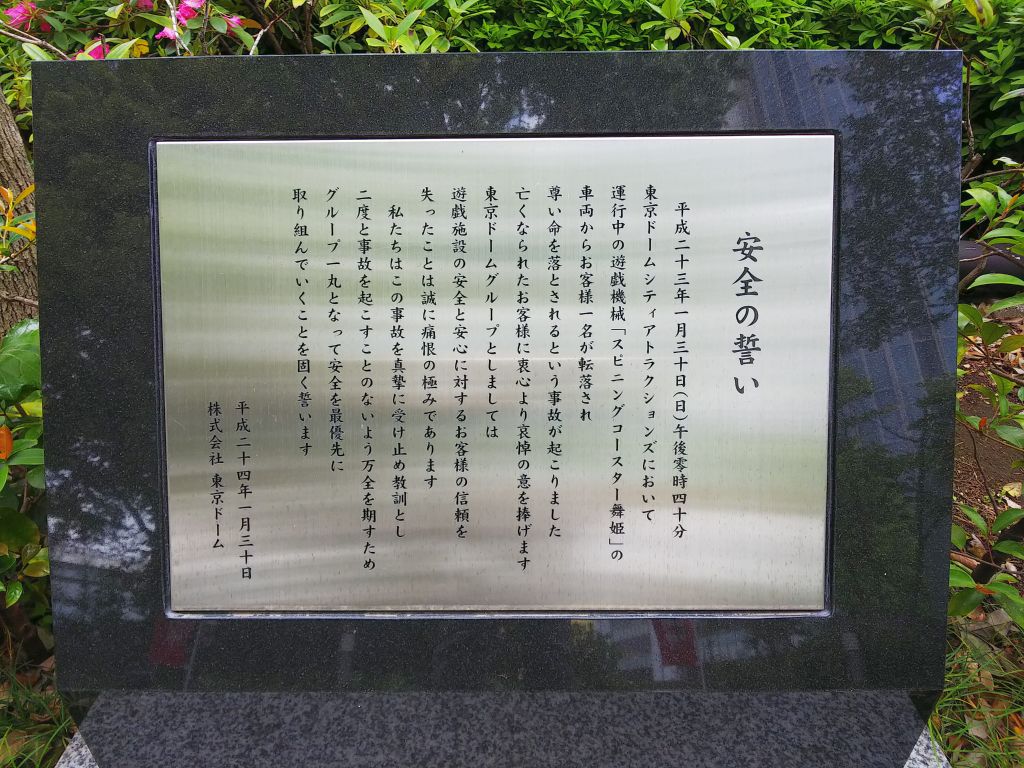 安全の誓い
平成二十三年一月三十日(日)午後零時四十分
東京ドームシティアトラクションズにおいて
運行中の遊戯機械「スピニングコースター舞姫」の
車両からお客様一名が転落され
尊い命を落とされるという事故が起こりました
亡くなられたお客様に衷心より哀悼の意を捧げます
東京ドームグループとしましては
遊戯施設の安全と安心に対するお客様の信頼を
失ったことは誠に痛恨の極みであります
私たちはこの事故を真摯に受け止め教訓とし
二度と事故を起こすことのないよう万全を期すため
グループ一丸となって安全を最優先に
取り組んでいくことを固く誓います
平成二十四年一月三十日
株式会社 東京ドーム